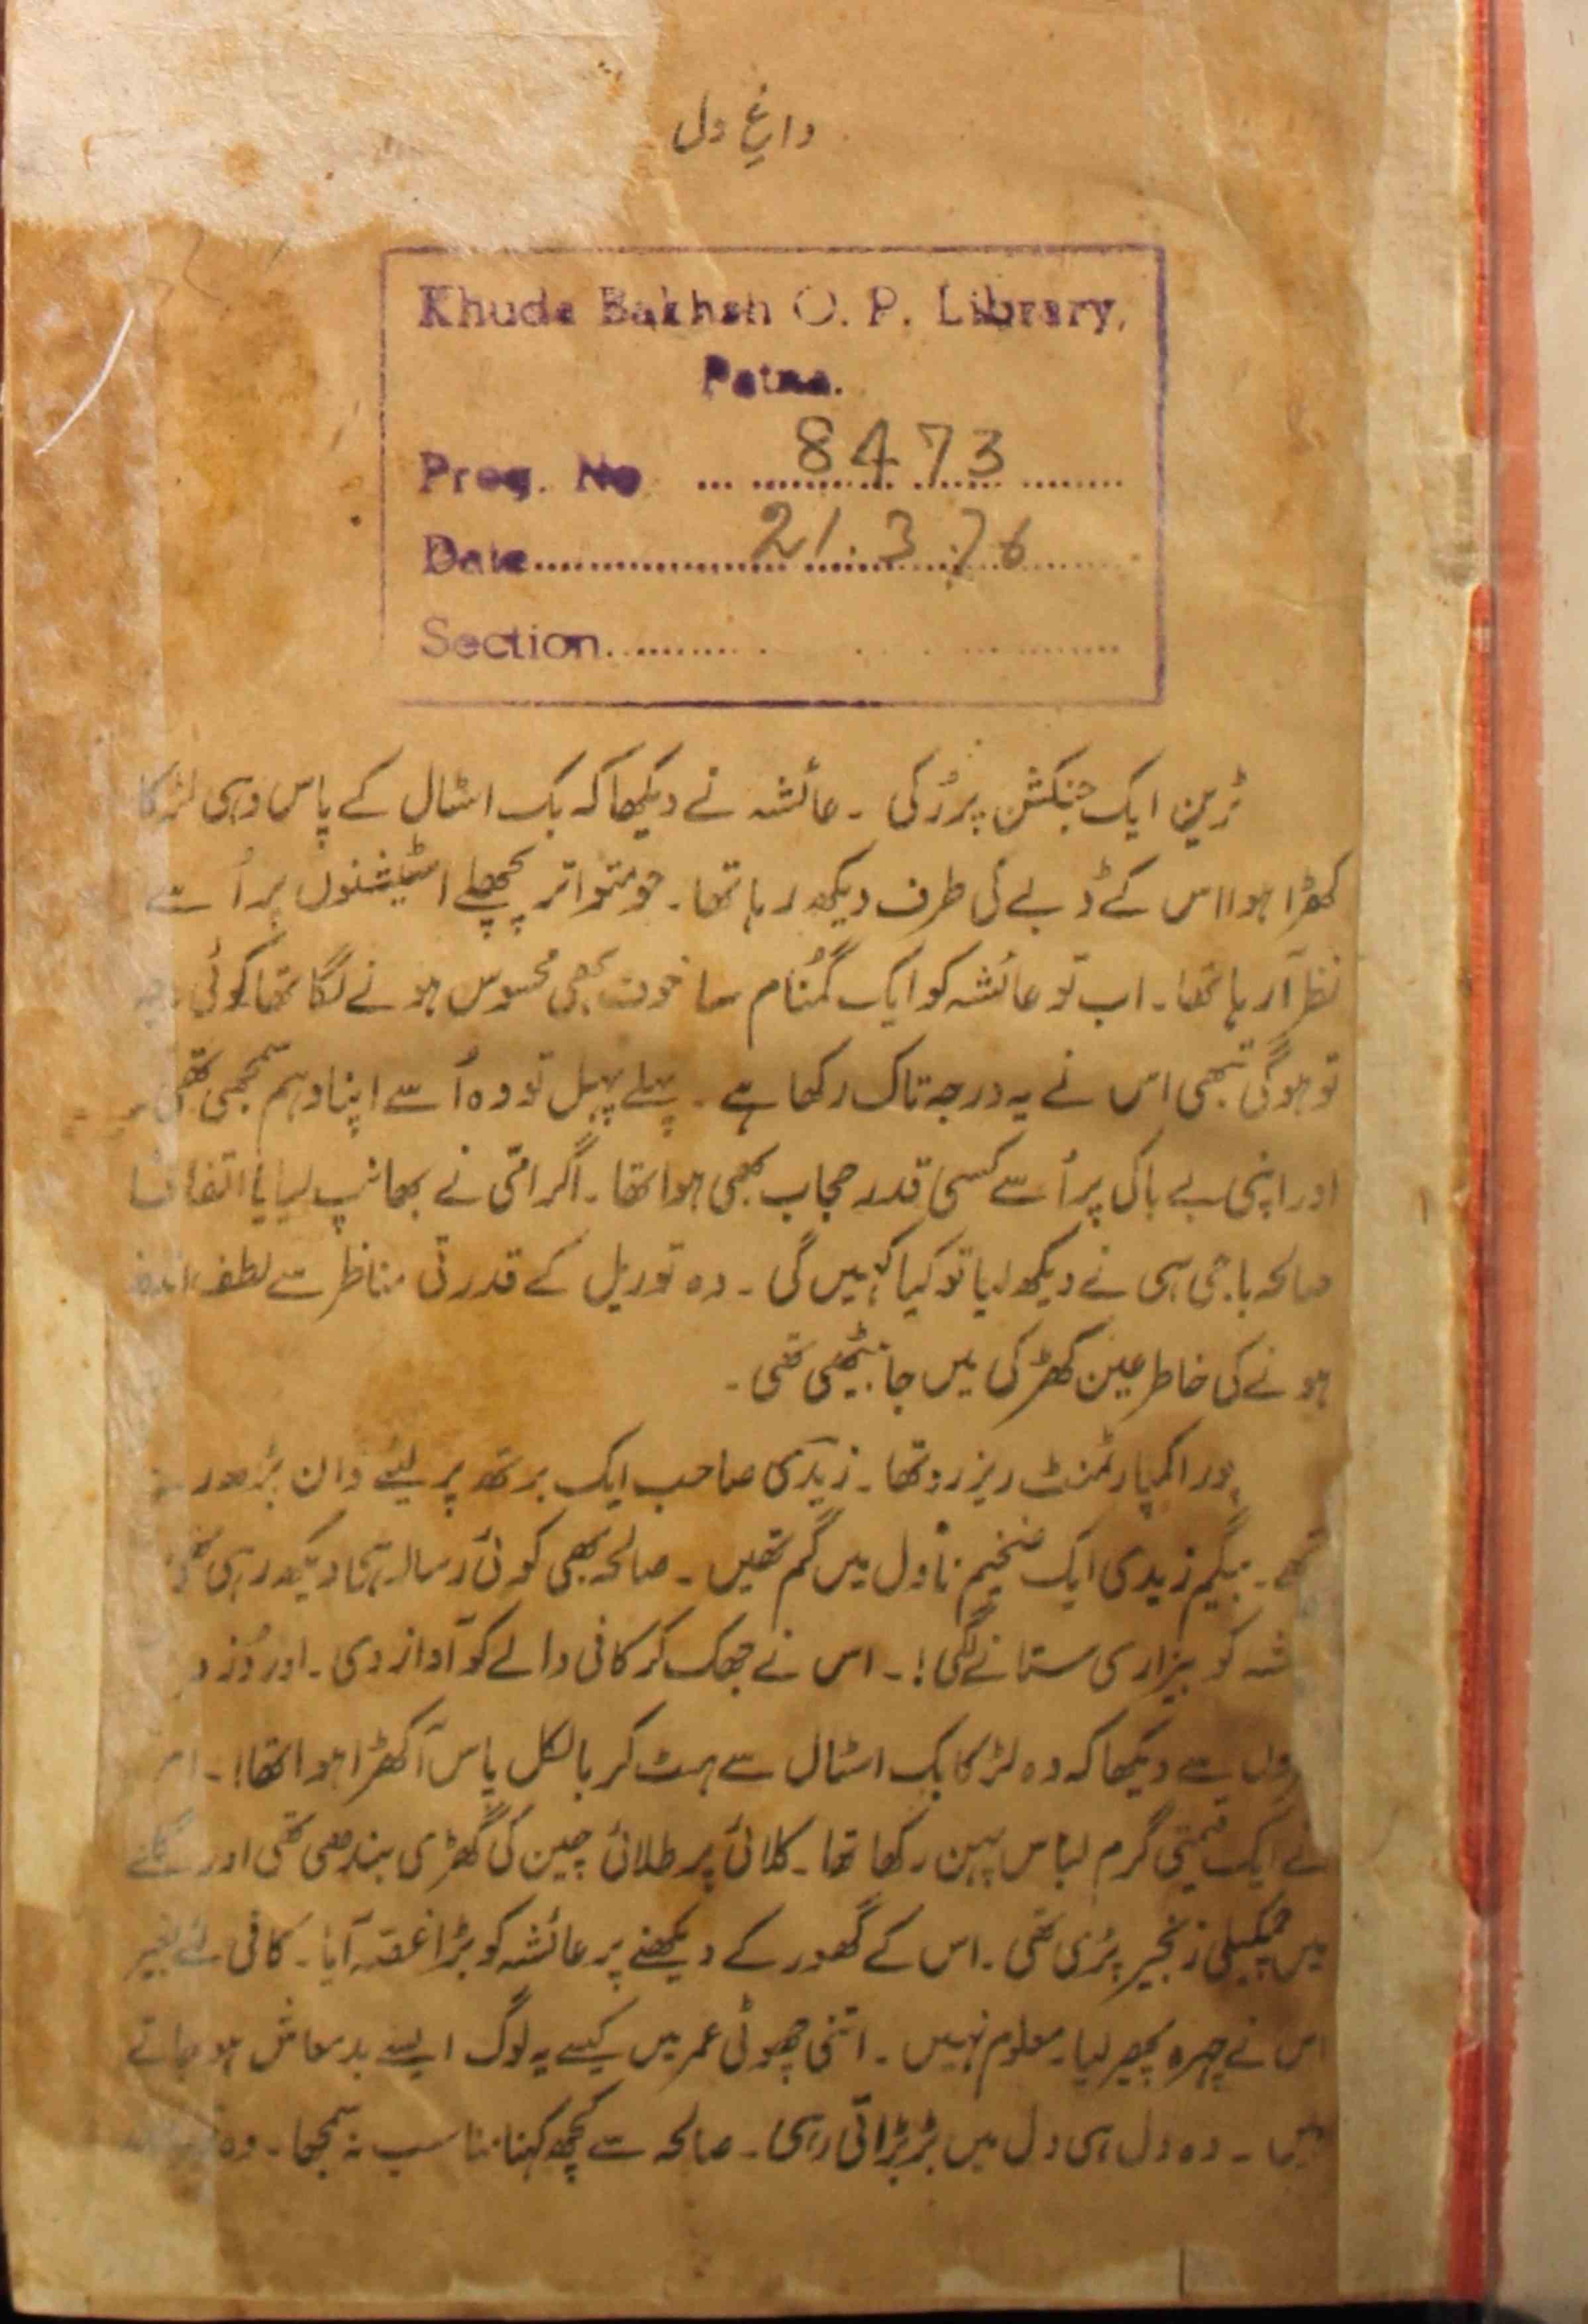 داغِ دل
Khuda Bakhsh O. P. Library,
Patna.
Preg. No ... 8473
Date 21.3.76
Section
ٹرین ایک جنکشن پر رُکی ۔ عائشہ نے دیکھا کہ بک اسٹال کے پاس وہی لڑکا
کھڑا ہوا اس کے ڈبے کی طرف دیکھ رہا تھا۔ جو متواتر پچھلے اسٹیشنوں پر اُسے
نظر آ رہا تھا۔ اب تو عائشہ کو ایک گُمنام سا خوف بھی محسوس ہونے لگا تھا کوئی
تو ہوگی تبھی اس نے یہ درجہ تاک رکھا ہے ۔ پہلے پہل تو وہ اُسے اپنا وہم سمجھی تھی
اور اپنی بے باکی پر اُسے کسی قدر حجاب بھی ہوا تھا ۔ اگر امّی نے بھانپ لیا یا اتفاقا
صالحہ باجی ہی نے دیکھ لیا تو کیا کہیں گی ۔ وہ تو ریل کے قدرتی مناظر سے لطف
ہونے کی خاطر عین کھڑکی میں جا بیٹھی تھی ۔
پورا کمپارٹمنٹ ریزرو تھا ۔ زیدی صاحب ایک برتھ پر لیٹے ڈان پڑھ
تھے ۔ بیگم زیدی ایک ضخیم ناول میں گم تھیں ۔ صالحہ بھی کوئی رسالہ ہی دیکھ رہی
شہ کو بیزاری ستانے لگی ! ۔ اس نے جھک کر کافی والے کو آواز دی ۔ اور دُزد
سے دیکھا کہ وہ لڑکا بک اسٹال سے ہٹ کر بالکل پاس آ کھڑا ہوا تھا ! ۔
نے ایک قیمتی گرم لباس پہن رکھا تھا ۔ کلائی پر طلائی چین کی گھڑی بندھی تھی اور گلے
میں چمکیلی زنجیر پڑی تھی ۔ اس کے گھور کے دیکھنے پر عائشہ کو بڑا غصہ آیا ۔ کافی لئے بغیر
اس نے چہرہ پھیر لیا ۔ معلوم نہیں ۔ اتنی چھوٹی عمر میں کیسے یہ لوگ ایسے بدمعاش ہو جاتے
ہیں ۔ وہ دل ہی دل میں بڑبڑاتی رہی ۔ صالحہ سے کچھ کہنا مناسب نہ سمجھا ۔ وہ